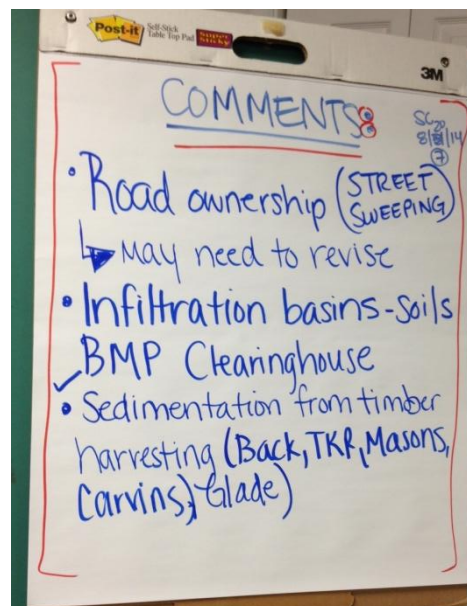 Post-it Self-Stick Table Top Pad Super Sticky
3M
COMMENTS:
8/21/14
7
• Road ownership (STREET SWEEPING)
↳ may need to revise
• Infiltration basins-soils
BMP Clearinghouse
✓
• Sedimentation from timber
harvesting (Back, TKR, Masons,
Carvins, Glade)